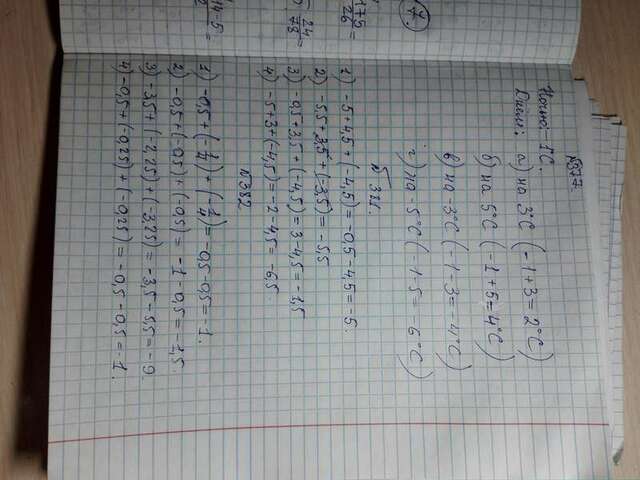 №377.
Ночью: 1°С.
Днём: а) на 3°С (-1+3=2°С)
б) на 5°С (-1+5=4°С)
в) на -3°С (-1-3=-4°С)
г) на -5°С (-1-5=-6°С)
№381.
1) -5+4,5+(-4,5)=-0,5-4,5=-5.
2) -5,5+3,5+(-3,5)=-5,5
3) -0,5+3,5+(-4,5)=3-4,5=-1,5
4) -5+3+(-4,5)=-2-4,5=-6,5
№382
1) -0,5+(-1/4)+(-1/4)=-0,5-0,5=-1.
2) -0,5+(-0,5)+(-0,5)=-1-0,5=-1,5
3) -3,5+(-2,25)+(-3,25)=-3,5-5,5=-9
4) -0,5+(-0,25)+(-0,25)=-0,5-0,5=-1.